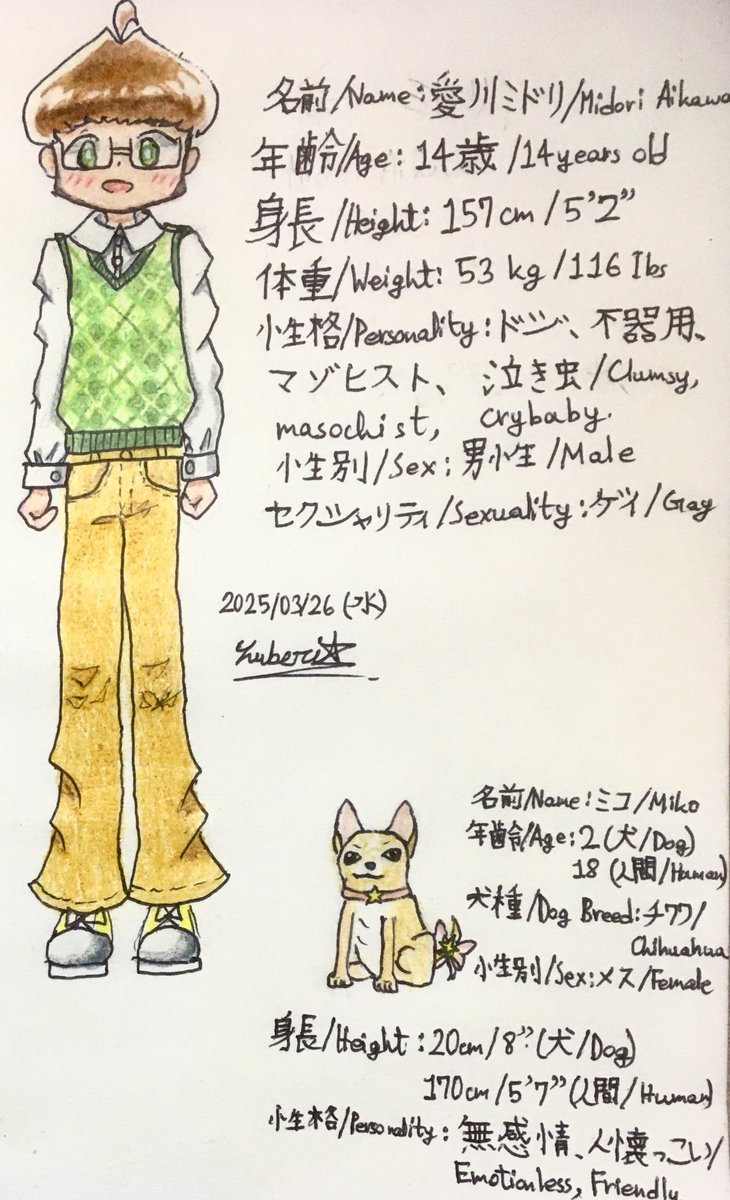 名前/Name:愛川ミドリ/Midori Aikawa
年齢/Age:14歳/14years old
身長/Height:157cm/5'2"
体重/Weight:53kg/116lbs
性格/Personality:ドジ、不器用、
マゾヒスト、泣き虫/Clumsy,
masochist, crybaby.
性別/Sex:男性/Male
セクシャリティ/Sexuality:ゲイ/Gay
2025/03/26(水)
名前/Name:ミコ/Miko
年齢/Age:2(犬/Dog)
18(人間/Human)
犬種/Dog Breed:チワワ/
Chihuahua
性別/Sex:メス/Female
身長/Height:20cm/8"(犬/Dog)
170cm/5'7"(人間/Human)
性格/Personality:無感情、人懐っこい/
Emotionless, Friendly